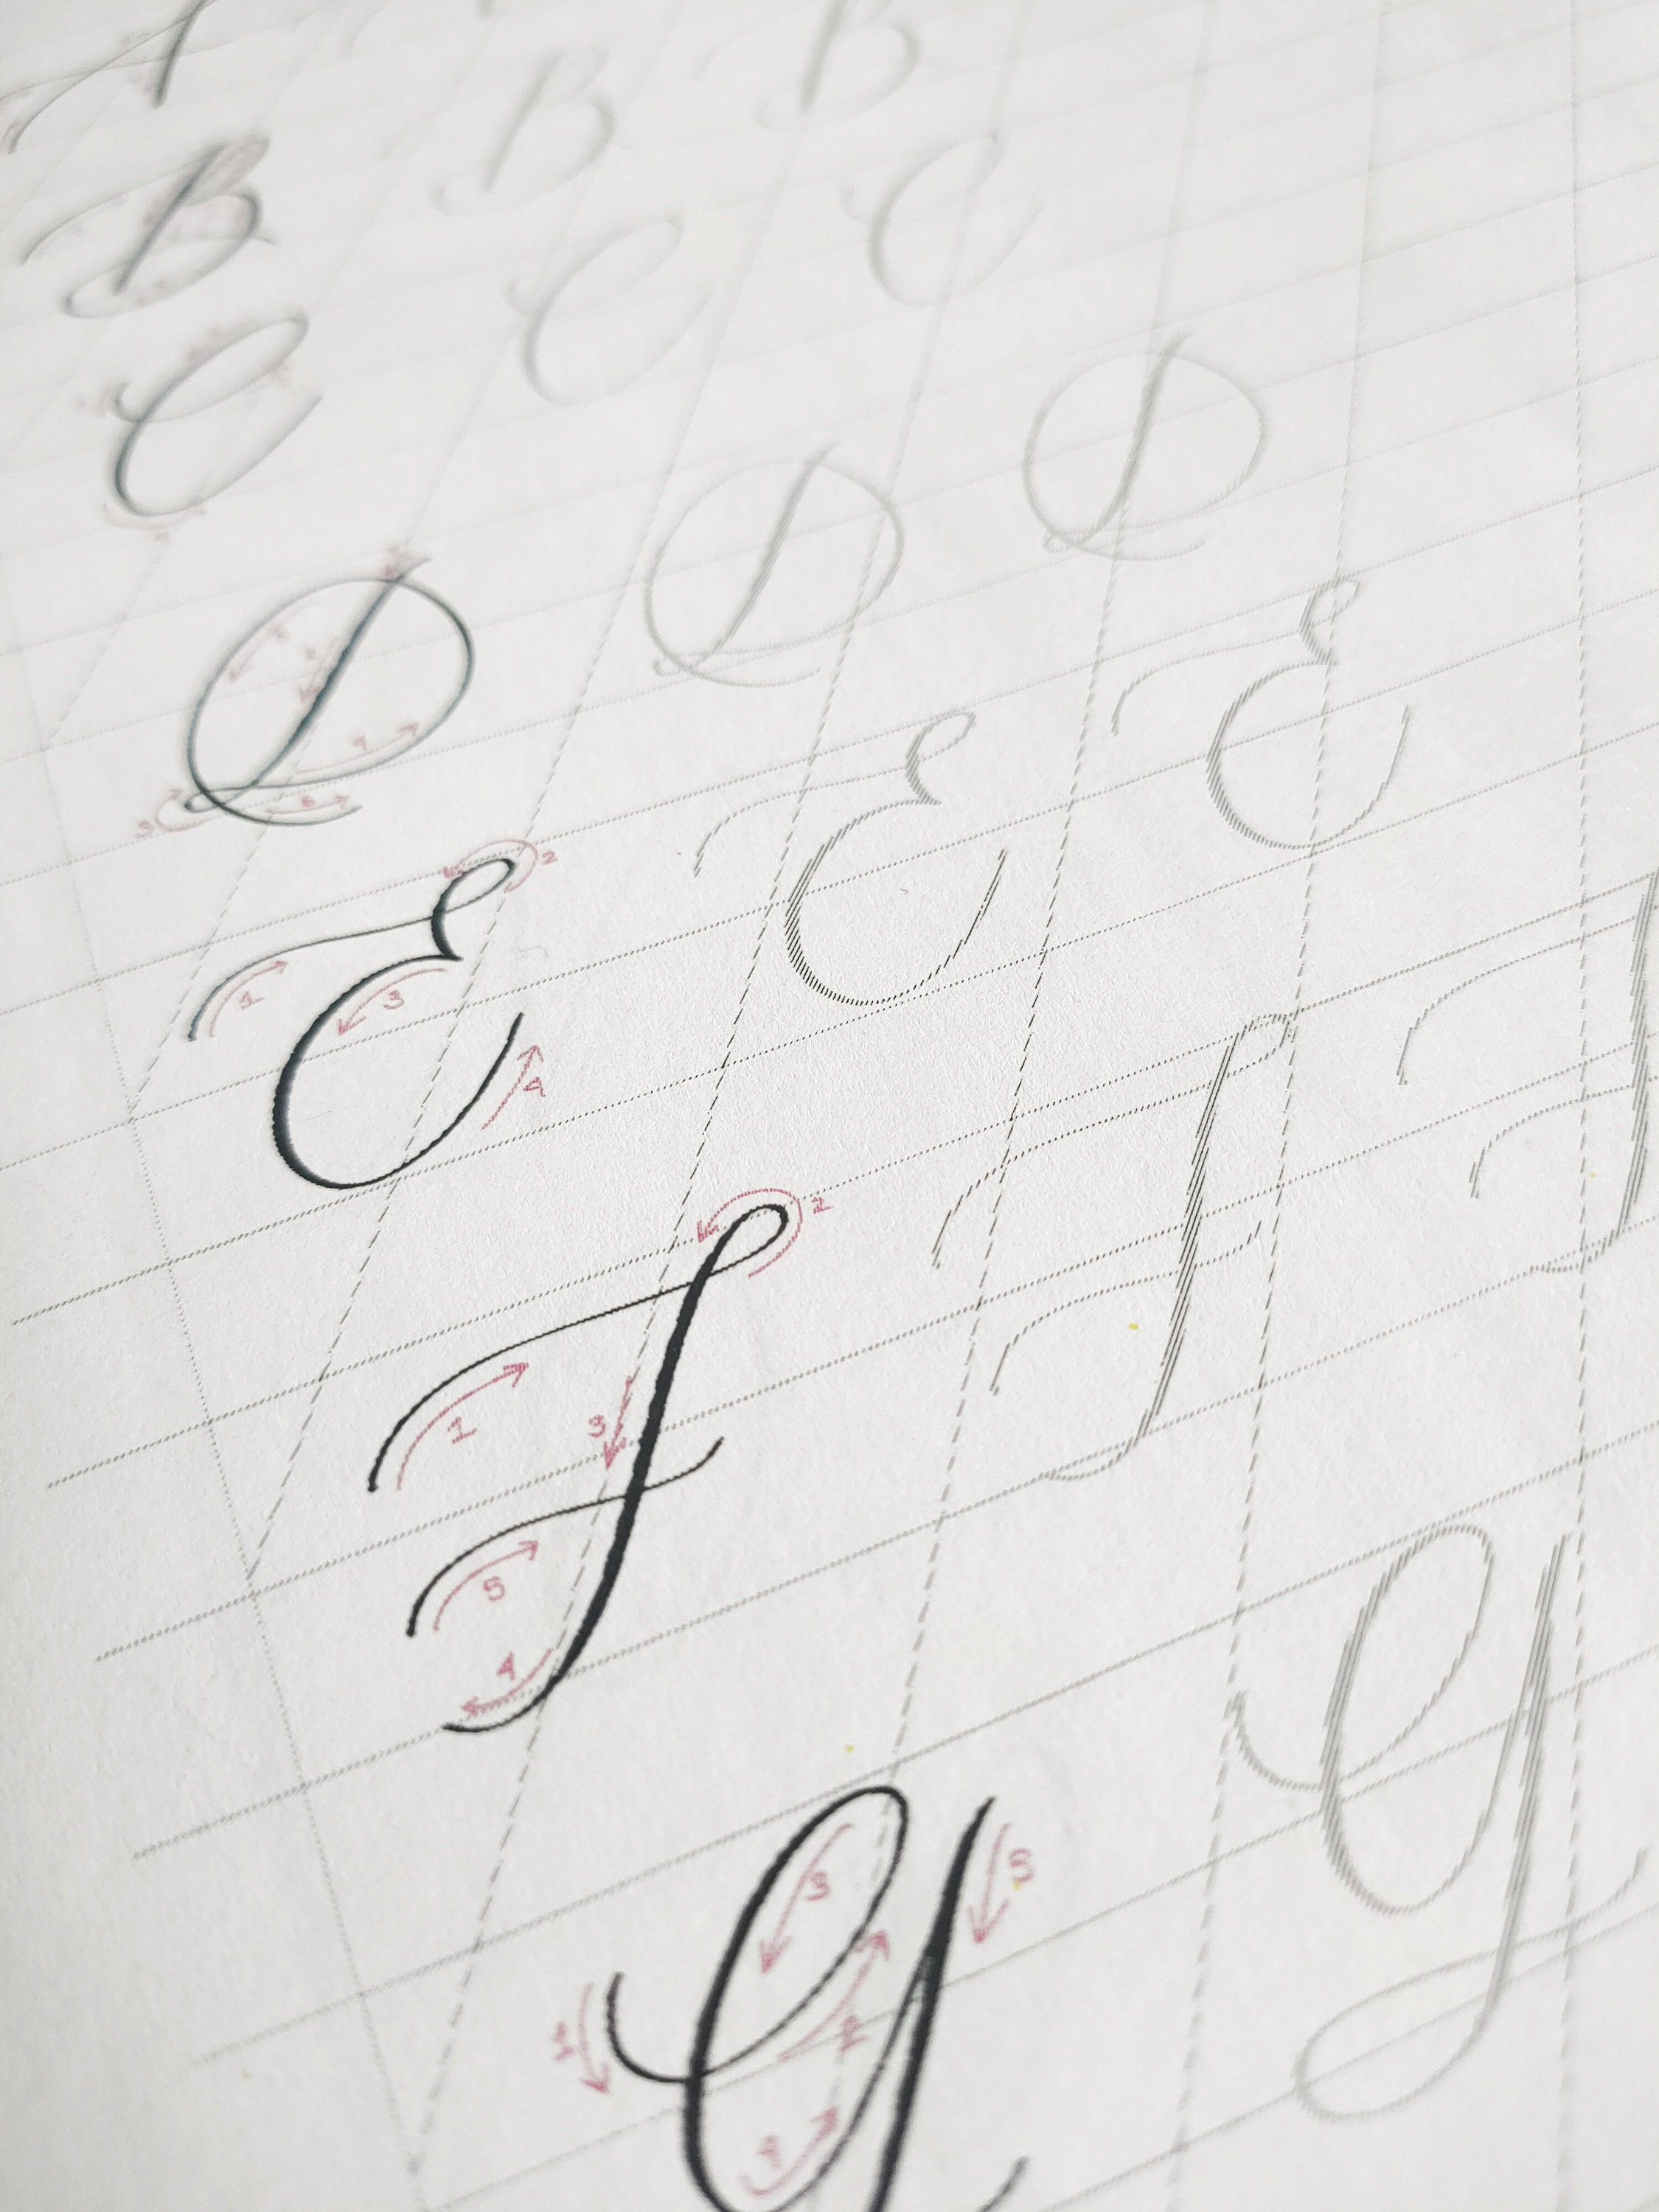 A
B B B
C C C
D D D
E E E
F F F
G G